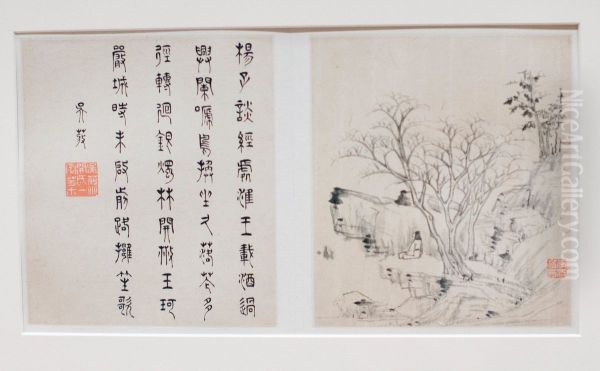 楊子談經處淮王載酒過
興闌啼鳥換坐久落花多
徑轉迴銀燭林開散玉珂
嚴城時未啟前路擁笙歌
吳
NiceArtGallery.com